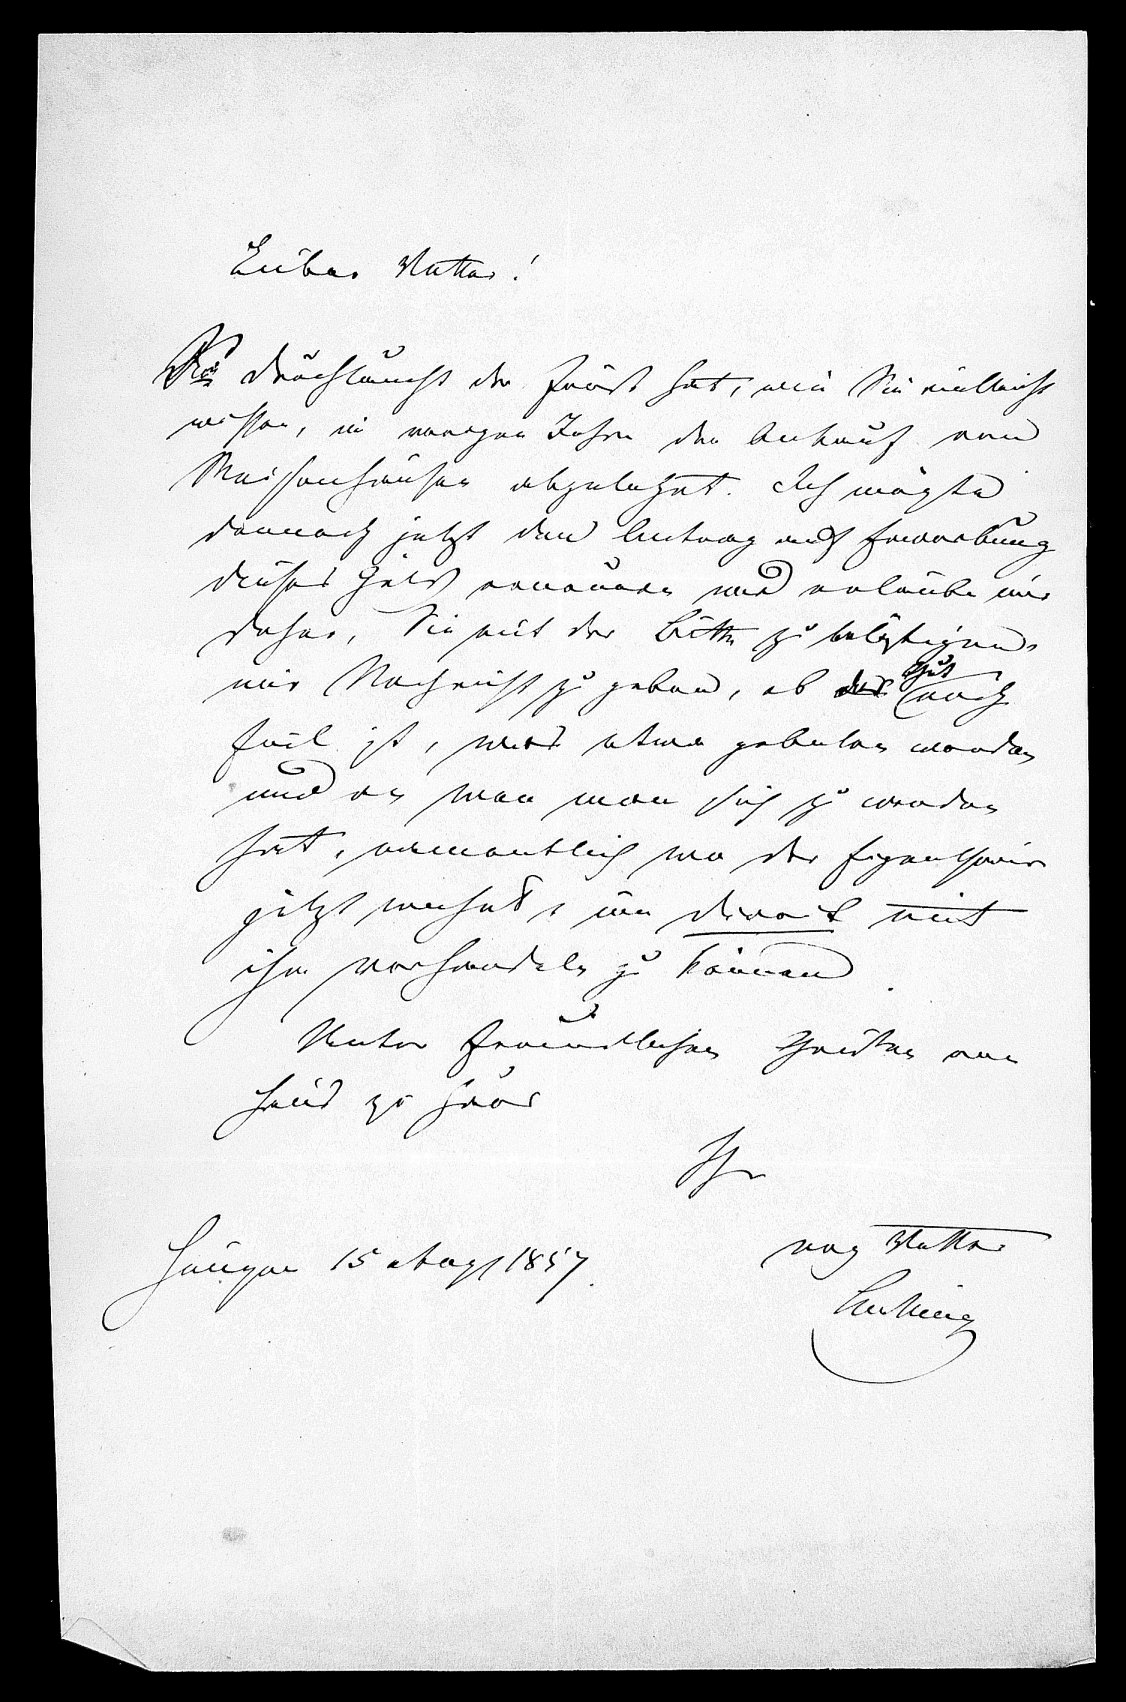 Lieber Vetter!
Se Durchlaucht der Fürst hat, wie Sie vielleicht
wissen, im vorigen Jahre den Ankauf von
Meissenhausen abgelehnt. Ich mögte
dennoch jetzt den Antrag auf Erwerbung
dieses Guts erneuern und erlaube mir
daher, Sie mit der Bitte zu belästigen,
mir Nachricht zu geben, ob das Gut noch
feil ist, was etwa geboten worden
und an wen man sich zu wenden
hat, namentlich wo der Eigenthümer
jetzt wohnt, um direct mit
ihm verhandeln zu können.
Unter freundlichen Grüßen von
Haus zu Haus
Ihr
Hungen 15 Aug 1857.
erg Vetter